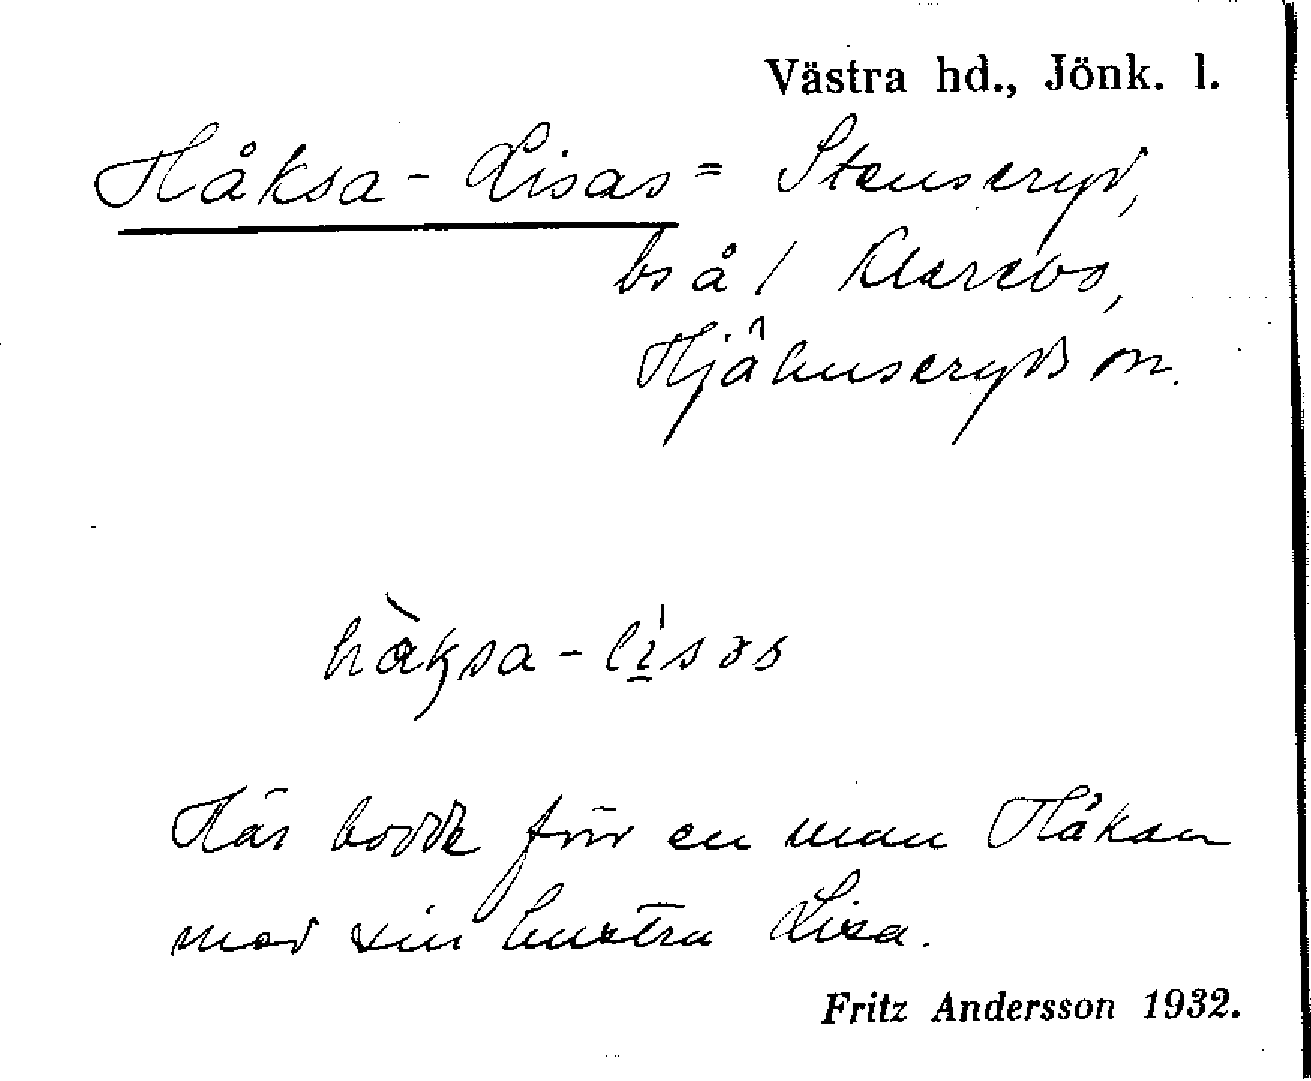 Västra hd., Jönk. l.
Håksa-Lisas = Stenseryd,
bs å / Klerebo,
Hjälmseryds sn.
håksa-lisas
Här bodde förr en man Håkan
med sin hustru Lisa.
Fritz Andersson 1932.